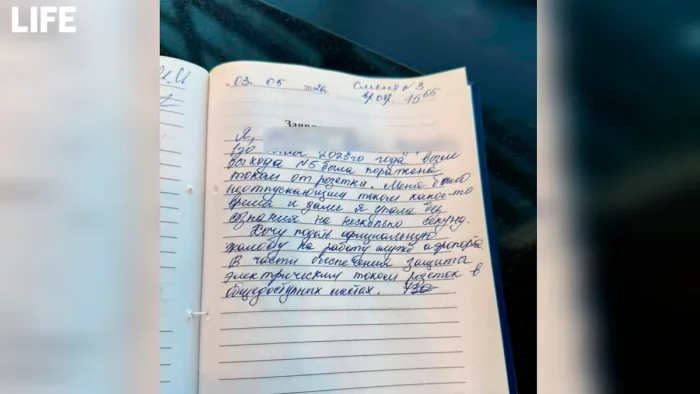 LIFE
03 05 Смена №3
15 55
Я,
года возле
выхода №5 была поражена
током от розетки. Меня было
неотпускающим током какое-то
время и далее я упала без
сознания на несколько секунд.
Хочу подать официальную
жалобу на работу служб аэропорта
В части обеспечения защиты
электрическим током розеток в
общедоступных местах.